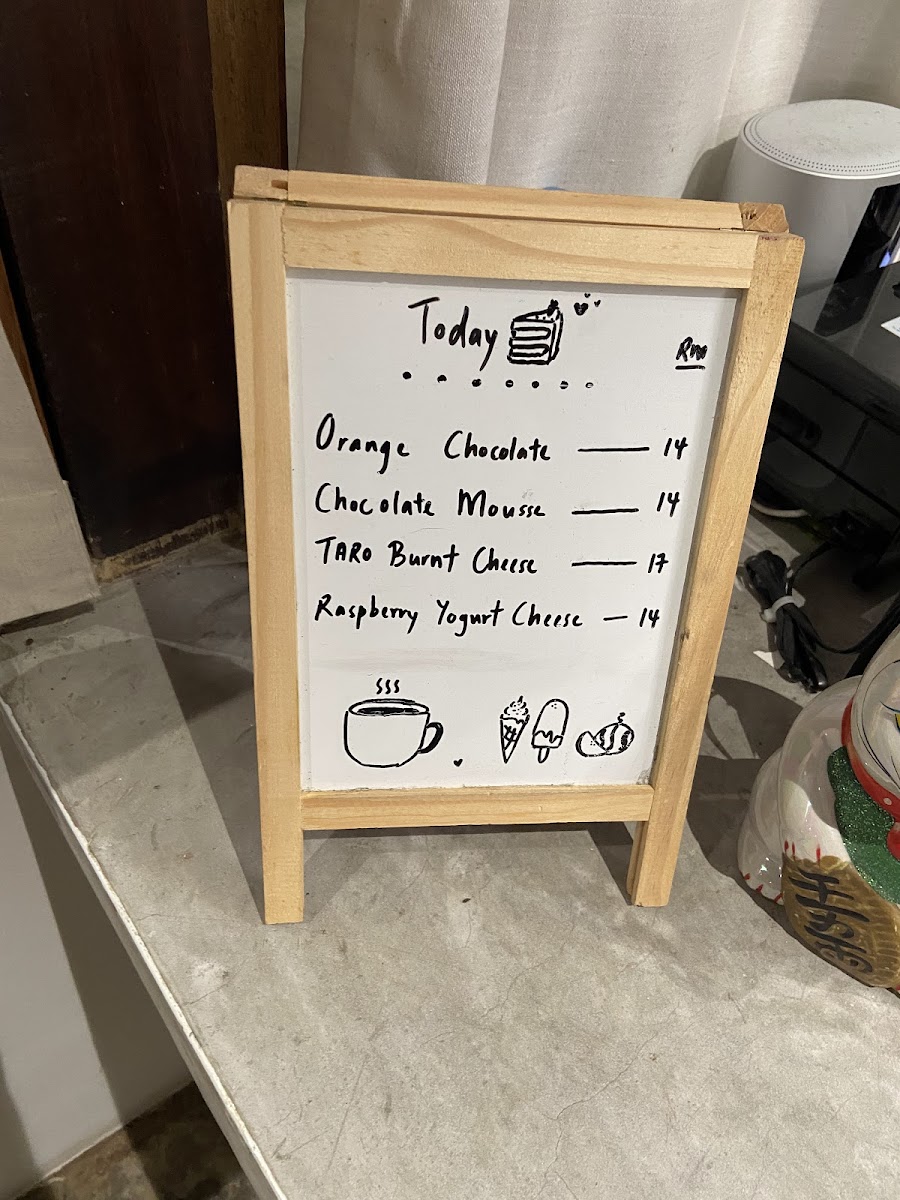 Today
RM
Orange Chocolate — 14
Chocolate Mousse — 14
TARO Burnt Cheese — 17
Raspberry Yogurt Cheese — 14